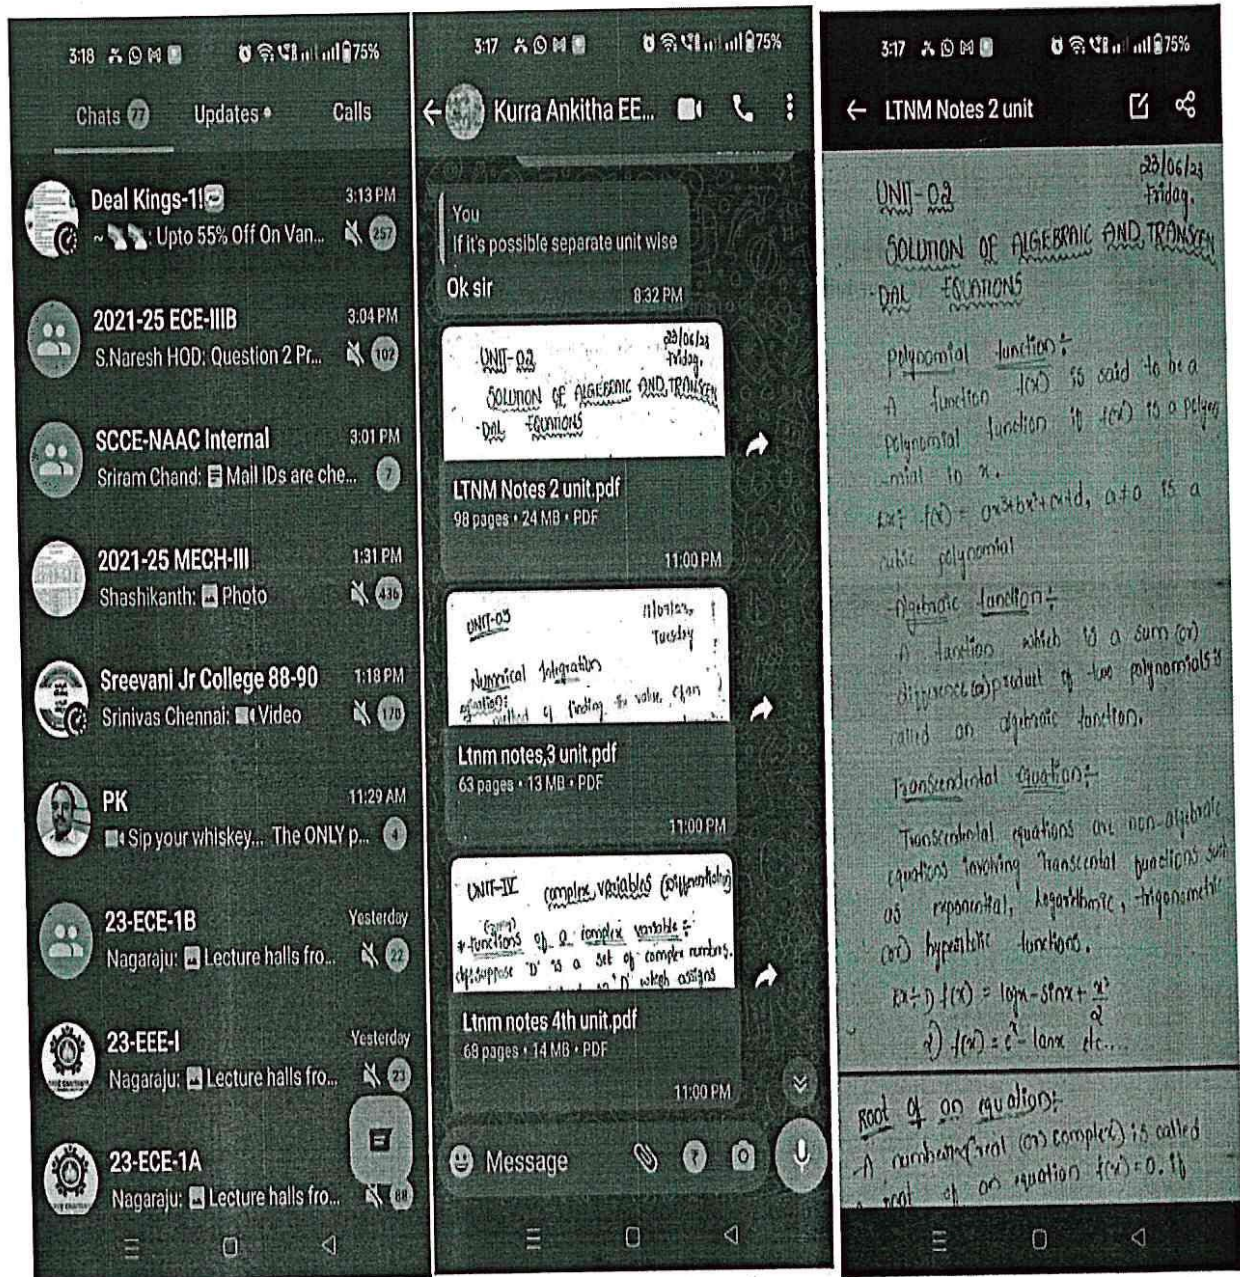 3:18
75%
Chats 77
Updates
Calls
Deal Kings-1!
3:13 PM
~ : Upto 55% Off On Van...
257
2021-25 ECE-IIIB
3:04 PM
S.Naresh HOD: Question 2 Pr...
102
SCCE-NAAC Internal
3:01 PM
Sriram Chand: Mail IDs are che...
7
2021-25 MECH-III
1:31 PM
Shashikanth: Photo
436
Sreevani Jr College 88-90
1:18 PM
Srinivas Chennai: Video
170
PK
11:29 AM
Sip your whiskey... The ONLY p...
4
23-ECE-1B
Yesterday
Nagaraju: Lecture halls fro...
22
23-EEE-I
Yesterday
Nagaraju: Lecture halls fro...
23
23-ECE-1A
Nagaraju: Lecture halls fro...
88
3:17
75%
Kurra Ankitha EE...
You
If it's possible separate unit wise
Ok sir
8:32 PM
UNIT-02
23/06/23
Friday.
SOLUTION OF ALGEBRAIC AND TRANSCEN
-DAL EQUATIONS
LTNM Notes 2 unit.pdf
98 pages • 24 MB • PDF
11:00 PM
UNIT-03
Tuesday
Numerical Integration
method of finding the value of an
Ltnm notes,3 unit.pdf
63 pages • 13 MB • PDF
11:00 PM
UNIT-IV complex variables (Differentiation)
* functions of a complex variable :-
suppose 'D' is a set of complex numbers.
'D' which assigns
Ltnm notes 4th unit.pdf
68 pages • 14 MB • PDF
11:00 PM
Message
3:17
75%
LTNM Notes 2 unit
23/06/23
UNIT-02
Friday.
SOLUTION OF ALGEBRAIC AND TRANSCEN
-DAL EQUATIONS
polynomial function÷
A function f(x) is said to be a
polynomial function if f(x) is a polyno
-mial in x.
Ex÷ f(x) = ax³+bx²+cx+d, a≠0 is a
cubic polynomial
Algebraic function÷
A function which is a sum (or)
difference (or) product of two polynomials is
called an algebraic function.
Transcendental equation÷
Transcendental equations are non-algebraic
equations involving Transcental functions such
as exponential, logarithmic, trigonometric
(or) hyperbolic functions.
Ex÷ 1) f(x) = logx - sinx + x³/2
2) f(x) = eˣ - tanx etc....
Root of an equation÷
A number (real (or) complex) is called
a root of an equation f(x)=0. if